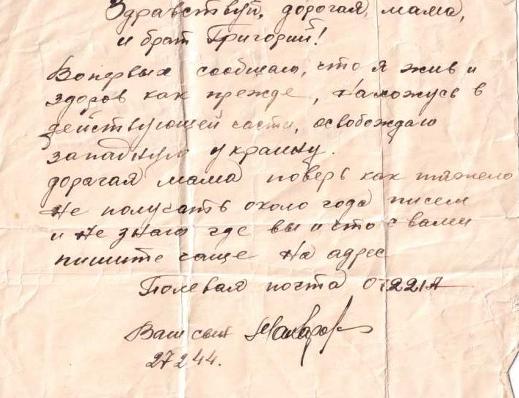 Здравствуй, дорогая, мама,
и брат Григорий!
Вопервых сообщаю, что я жив и
здоров как прежде, нахожусь в
действующей части, освобождаю
западную украину.
дорогая мама поверь как тяжело
не получать около года писем
и не знаю где вы и что с вами
пишите чаще на адрес
Полевая почта 02221А
Ваш сын Макаров
27244.